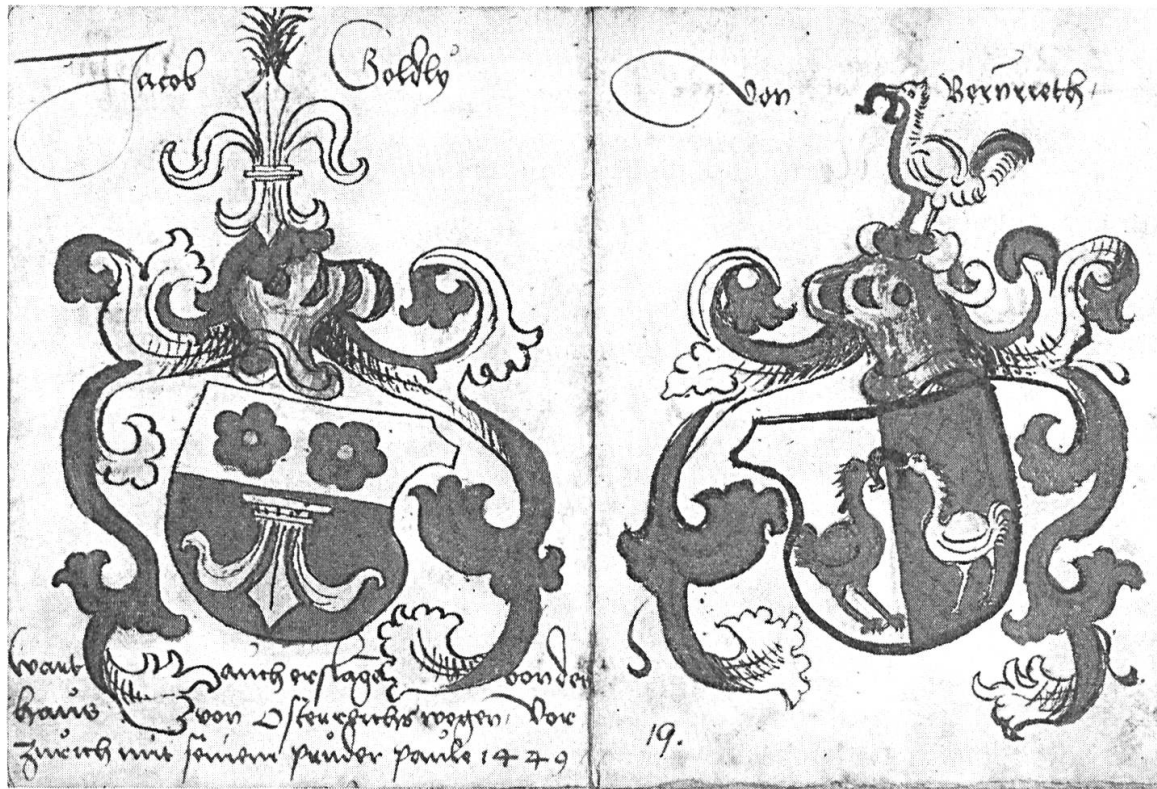 Jacob Goldly
Von Bernreth
wart auch erslagē von des
haus von Osterreichs wegen, vor
Zurich mit seinem pruder Paule 1449
19.